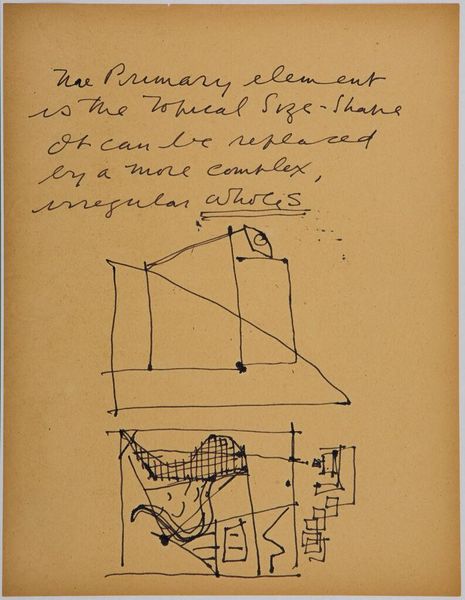 The Primary element
is the Topical Size-Shape
It can be replaced
by a more complex,
irregular wholes